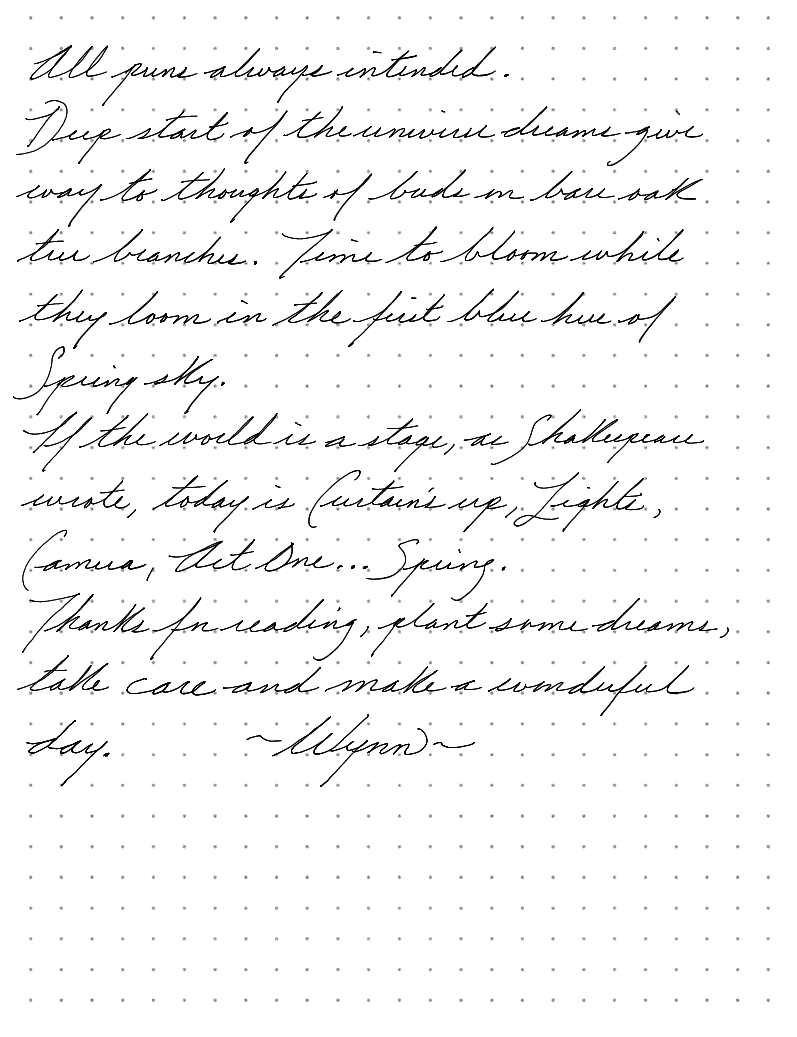 All puns always intended.
Deep start of the universe dreams give
way to thoughts of buds on bare oak
tree branches. Time to bloom while
they loom in the first blue hue of
Spring sky.
If the world is a stage, as Shakespeare
wrote, today is Curtain's up, Lights,
Camera, Act One... Spring.
Thanks for reading, plant some dreams,
take care and make a wonderful
day. ~Wynn~